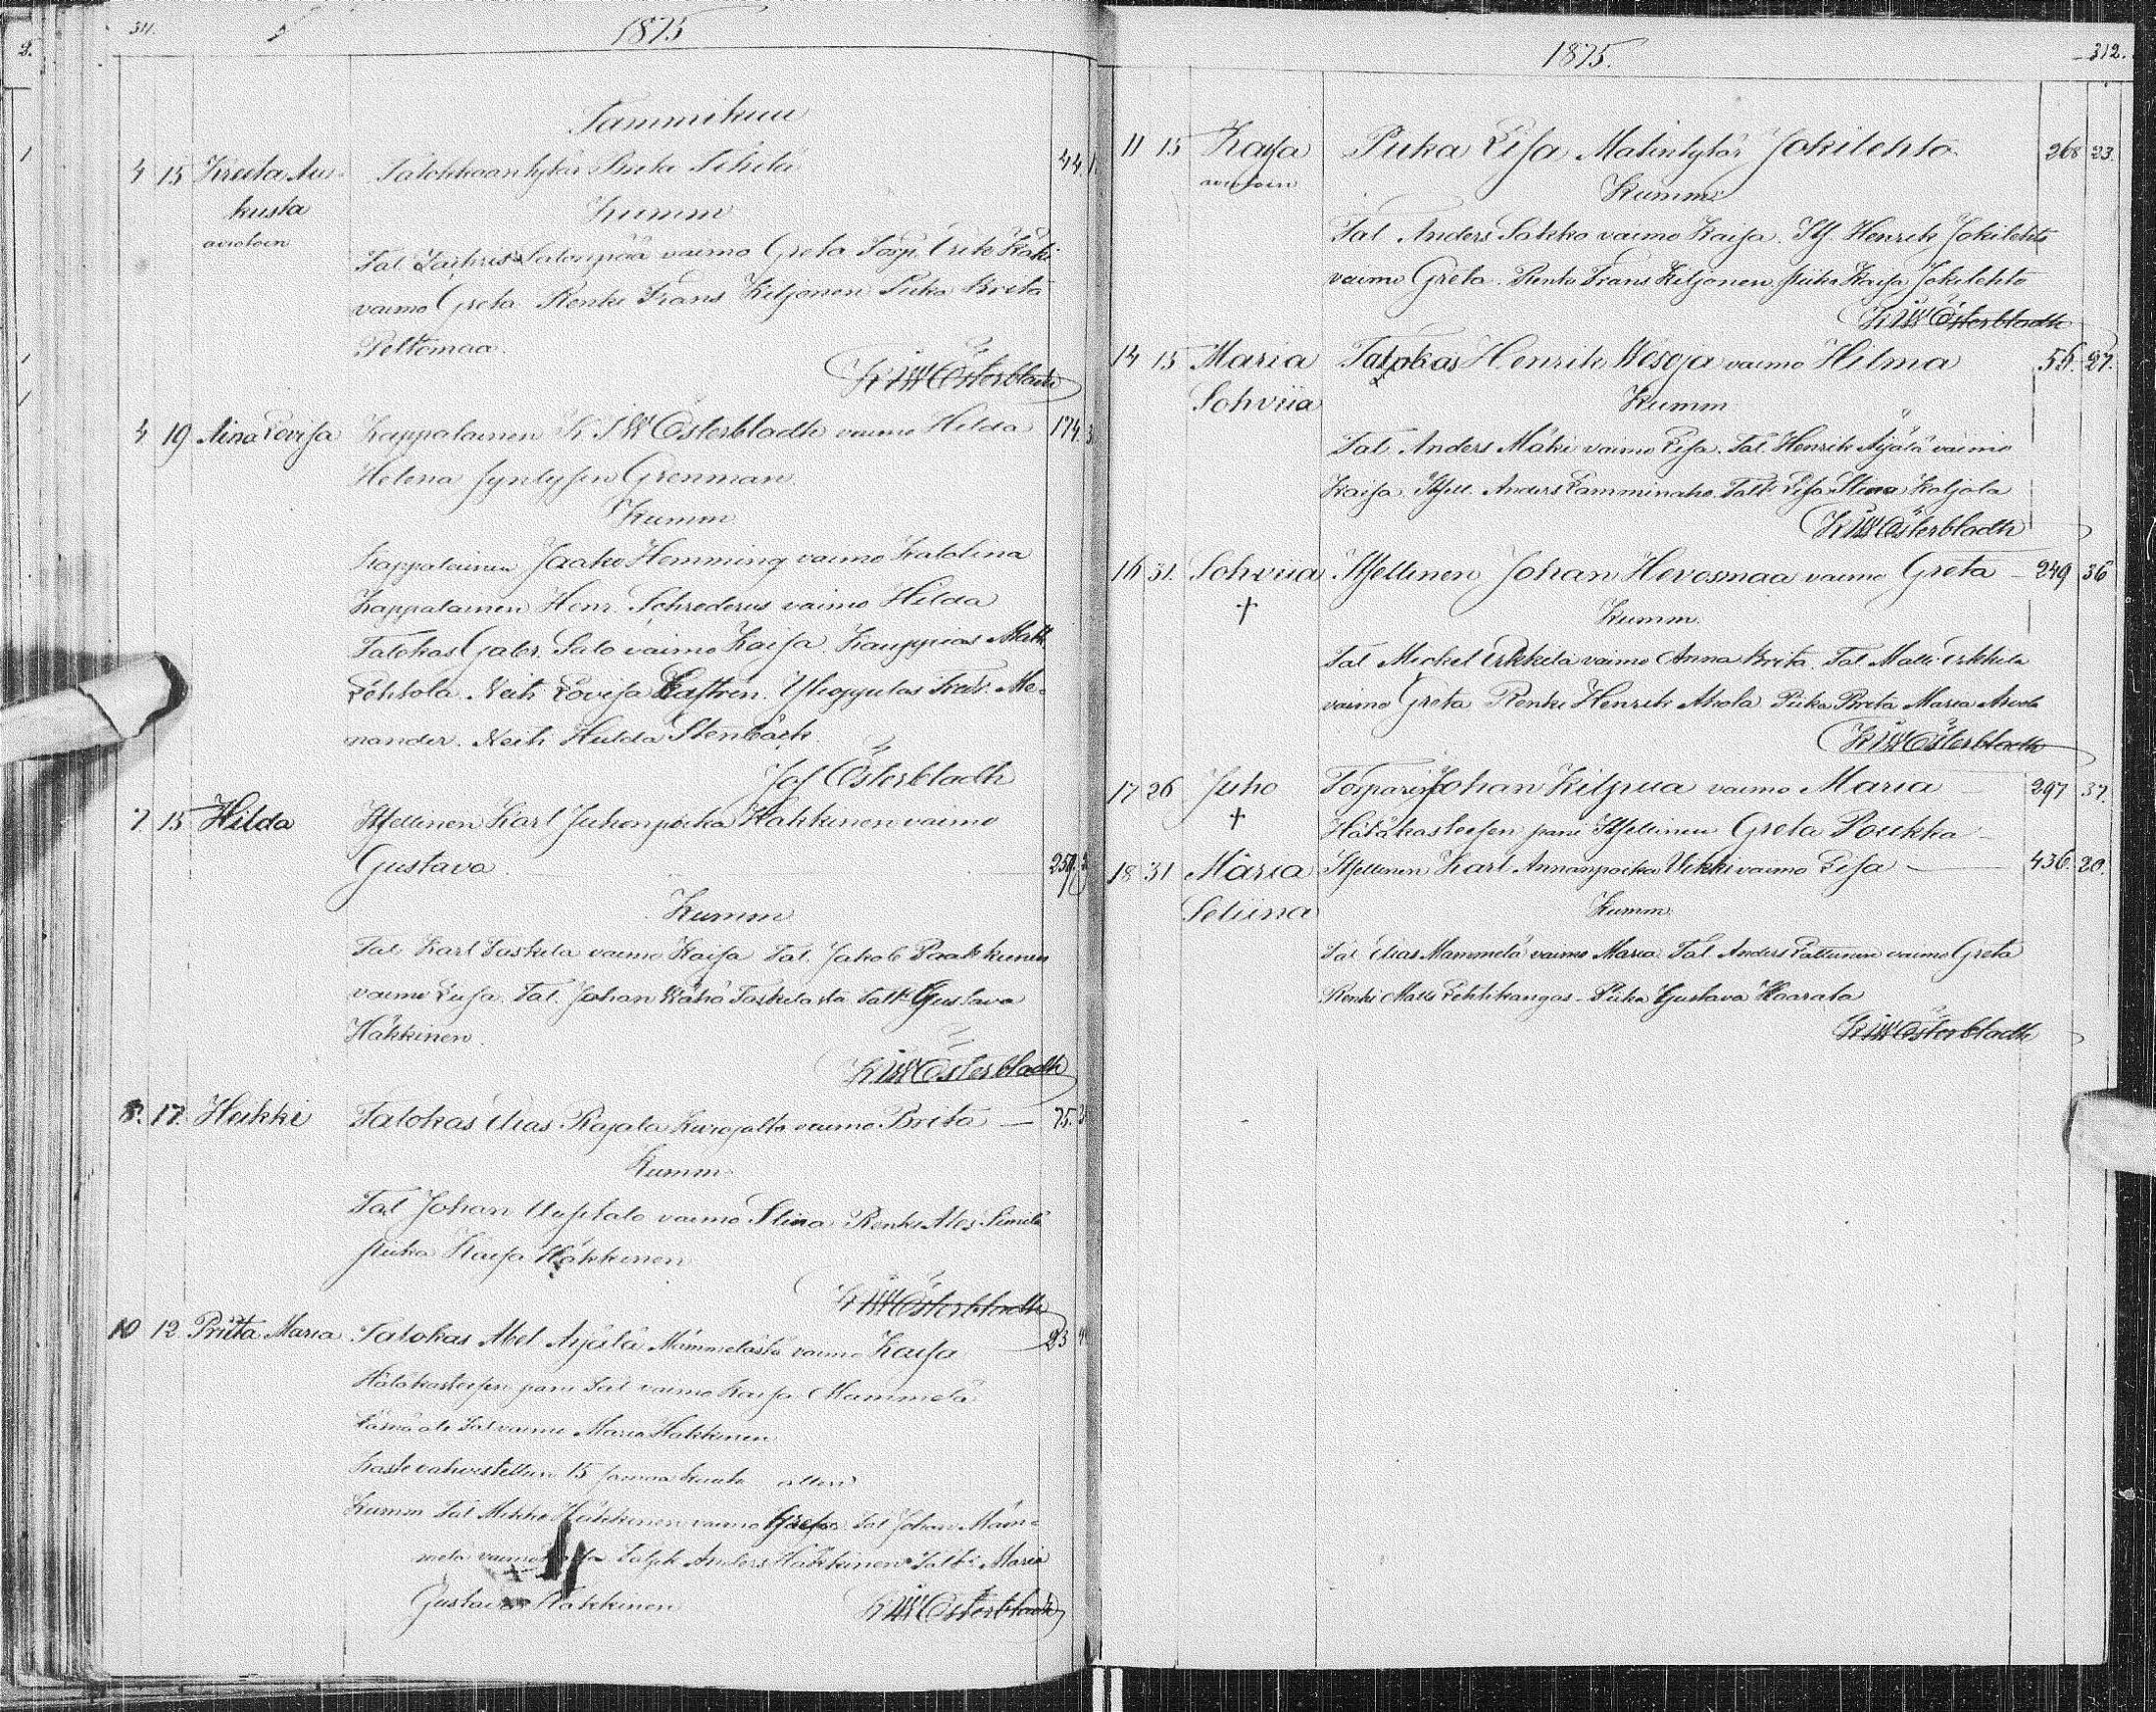 311.
1875
Tammikuu
4 15 Kreeta Au-
kusta
aviotoin
Talokkaantytär Briita 44.
Kumm
Tal Salonpää vaimo Greta Torp. Erik Käki
vaimo Greta Renki Frans Kiljonen Piika Brita
Peltomaa.
K J W Österbladh
4 19 Aina Lovisa Kappalainen K J W Österbladh vaimo Hilda 174. 3
Helena syntysin Grenman.
Kumm
Kappalainen Jaako Hemming vaimo Katalina
Kappalainen Henr. Schroderus vaimo Hilda
Talokas Gabr. Salo vaimo Kaisa Kauppias Matt
Lehtola. Neiti Lovisa Castrén. Ylioppilas Fredr. Me-
nander. Neiti Hulda Stenbäck.
Jos Österbladh
7. 15 Hilda Itsellinen Karl Juhonpoika Häkkinen vaimo
Gustava
Kumm
Tal Karl Taskila vaimo Kaisa Tal. Jakob Paakkunen
vaimo Liisa. Tal. Johan Kähö Taskilasta Talt: Gustava
Häkkinen.
K J W Österbladh
8. 17. Heikki Talokas Elias Rajala vaimo Brita — 75.
Kumm
Tal Johan Uusitalo vaimo Stina Renki Alex Similä
piika Kaisa Häkkinen
K J W Österbladh
10 12 Priita Maria Talokas Abel Äijälä Mämmelästä vaimo Kaisa 23
Hätäkasteesen pani Tal vaimo Kaisa Mämmelä
Läsnä oli Tal vaimo Maria Häkkinen
Kaste vahvistettiin 15 samaa kuuta
Kumm Tal Mikko Häkkinen vaimo Tal Johan Mäm-
melä vaimo Kaisa Talpk Anders Häkkinen Talt: Maria
Gustava Häkkinen K J W Österbladh
312.
1875.
11 15 Kaisa Piika Lisa Matintytär Jokilehto 268 23.
aviotoin
Kumm
Tal Anders Sakko vaimo Kaisa. Its. Henrik Jokilehto
vaimo Greta. Renki Frans Kiljonen piika Kaisa Jokilehto
K J W Österbladh
14 15 Maria Talokas Henrik Wesoja vaimo Hilma 56. 27.
Sohviia
Kumm
Tal. Anders Mäki vaimo Lisa. Tal. Henrik Äijälä vaimo
Kaisa Itsell. Anders Lamminaho Talt: Lisa Stina Koljola
K J W Österbladh
16 31. Sohviia Itsellinen Johan Hevosmaa vaimo Greta — 249 36
†
Kumm.
Tal Mickel Erkkilä vaimo Anna Brita. Tal Matti Erkkilä
vaimo Greta Renki Henrik Ahola Piika Brita Maria
K J W Österbladh
17 26 Juho Torparin Johan Kilpua vaimo Maria — 297 37.
† Hätäkasteesen pani Itsellinen Greta Poukka —
18 31 Maria Itsellinen Karl Annanpoika Ukki vaimo Lisa — 436. 20.
Seliina
Kumm
Tal Elias Mämmelä vaimo Maria Tal Anders vaimo Greta
Renki Matti Lehtikangas – Piika Gustava Haarala
K J W Österbladh